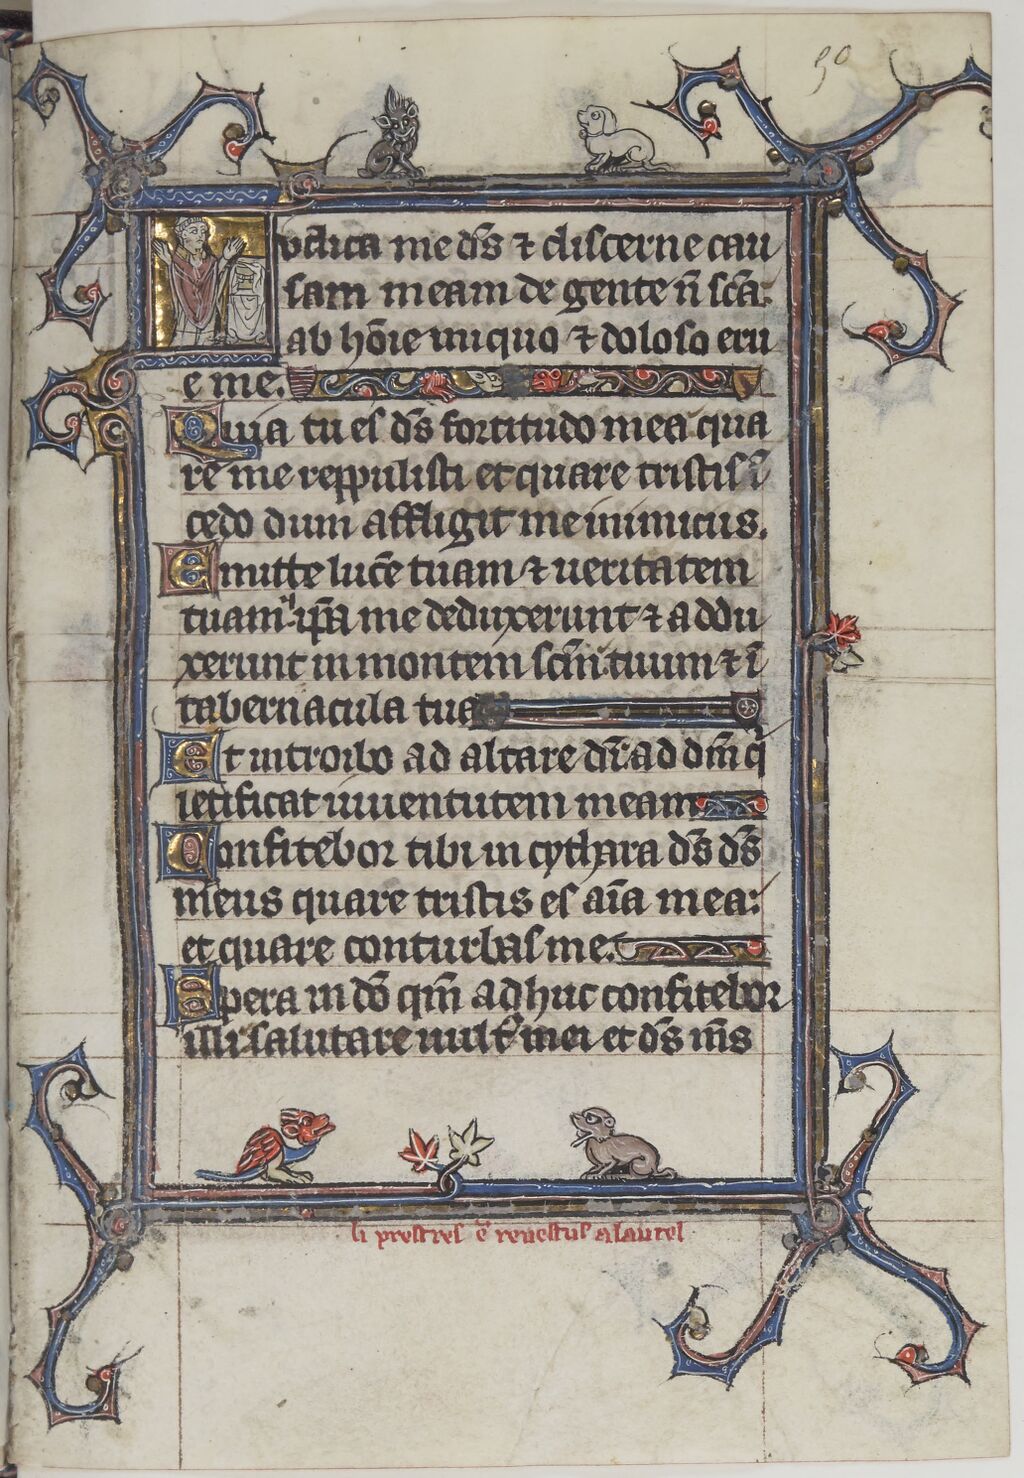 50
Iudica me ds̄ ⁊ discerne cau
sam meam de gente n̄ scā:
ab hōie iniquo ⁊ doloso eru
e me.
Quia tu es ds̄ fortitudo mea qua
re me reppulisti et quare tristis ī
cedo dum affligit me inimicus.
Emitte lucē tuam ⁊ ueritatem
tuam ip̄a me deduxerunt ⁊ addu
xerunt in montem scm̄ tuum ⁊ ī
tabernacula tua
Et introibo ad altare dei ad dm̄ q
letificat iuuentutem meam
Confitebor tibi in cythara ds̄ ds̄
meus quare tristis es aīa mea:
et quare conturbas me.
Spera in dō qm̄ adhuc confitebor
illi salutare uult᷒ mei et ds̄ ms̄
li prestres ē reuestus a lautel